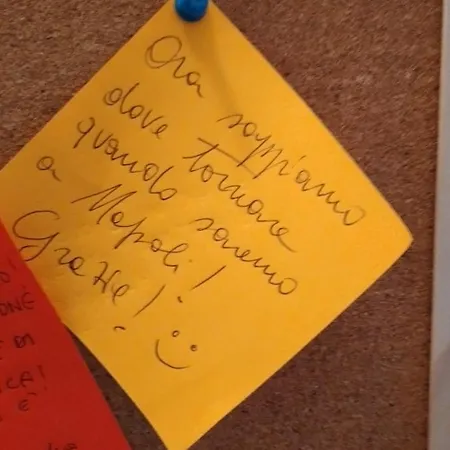 Ora sappiamo
dove tornare
quando saremo
a Napoli!
Grazie! :)